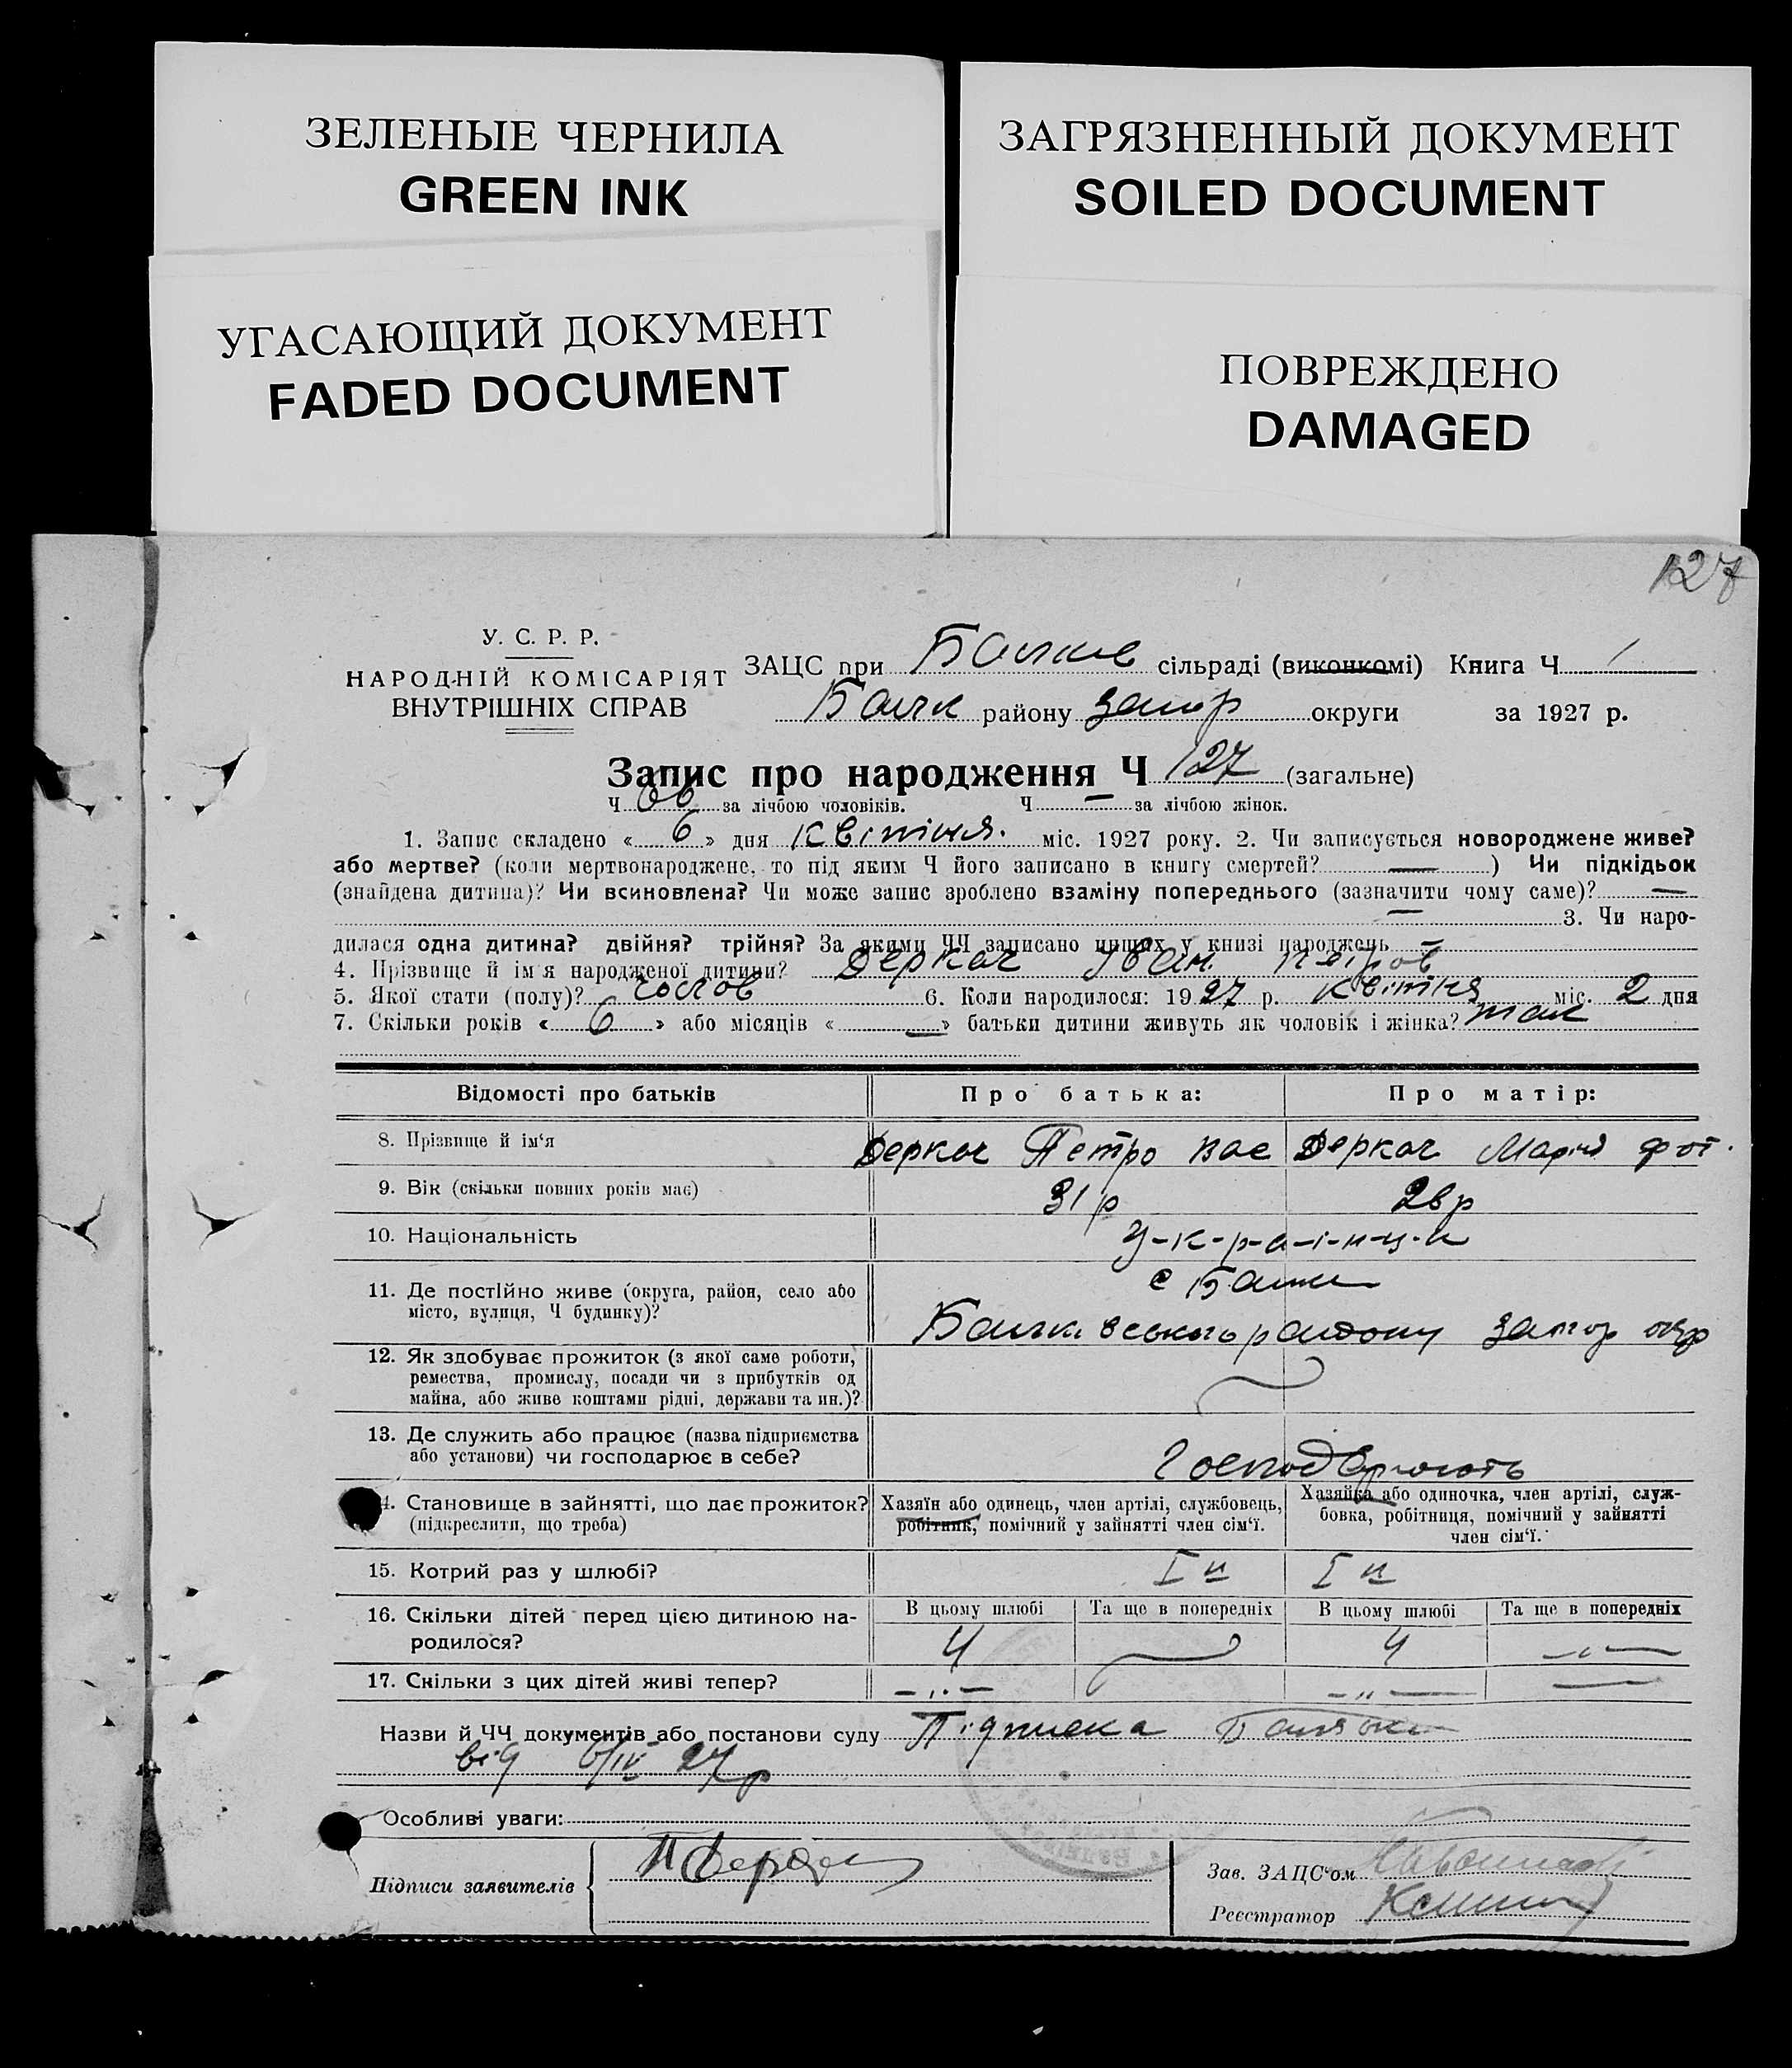 ЗЕЛЕНЫЕ ЧЕРНИЛА
GREEN INK
ЗАГРЯЗНЕННЫЙ ДОКУМЕНТ
SOILED DOCUMENT
УГАСАЮЩИЙ ДОКУМЕНТ
FADED DOCUMENT
ПОВРЕЖДЕНО
DAMAGED
127
У. С. Р. Р.
НАРОДНІЙ КОМІСАРІЯТ
ВНУТРІШНІХ СПРАВ
ЗАЦС при сільраді (виконкомі) Книга Ч 1
району Запор округи за 1927 р.
Запис про народження Ч 127 (загальне)
Ч 66 за лічбою чоловіків. Ч — за лічбою жінок.
1. Запис складено « 6 » дня квітня. міс. 1927 року. 2. Чи записується новороджене живе?
або мертве? (коли мертвонароджене, то під яким Ч його записано в книгу смертей? — ) Чи підкідьок
(знайдена дитина)? Чи всиновлена? Чи може запис зроблено взаміну попереднього (зазначити чому саме)? —
— 3. Чи наро-
дилася одна дитина? двійня? трійня? За якими ЧЧ записано инших у книзі народжень —
4. Прізвище й ім'я народженої дитини? Деркач Іван Петров
5. Якої стати (полу)? чолов 6. Коли народилося: 1927 р. квітня міс. 2 дня
7. Скільки років « 6 » або місяців « — » батьки дитини живуть як чоловік і жінка? так
Відомості про батьків Про батька: Про матір:
8. Прізвище й ім'я Деркач Петро Вас Деркач Марія Фот.
9. Вік (скільки повних років має) 31 р 26 р
10. Національність У-к-р-а-ї-н-ц-и
11. Де постійно живе (округа, район, село або
місто, вулиця, Ч будинку)?
району Запор окр
12. Як здобуває прожиток (з якої саме роботи,
ремества, промислу, посади чи з прибутків од
майна, або живе коштами рідні, держави та ин.)?
13. Де служить або працює (назва підприємства
або установи) чи господарює в себе?
Господарюють
4. Становище в зайнятті, що дає прожиток? Хазяїн або одинець, член артілі, службовець, Хазяйка або одиночка, член артілі, служ-
(підкреслити, що треба) робітник, помічний у зайнятті член сім'ї. бовка, робітниця, помічний у зайнятті
член сім'ї.
15. Котрий раз у шлюбі? I й I й
16. Скільки дітей перед цією дитиною на- В цьому шлюбі Та ще в попередніх В цьому шлюбі Та ще в попередніх
родилося? 4 4 —"—
17. Скільки з цих дітей живі тепер? —"— —"— —
Назви й ЧЧ документів або постанови суду Підписка
від 6/IV 27 р
Особливі уваги:
Підписи заявителів
Зав. ЗАЦС'ом
Реєстратор